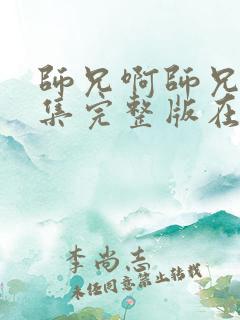 師兄啊師兄
集完整版在
李尚志
未经同意禁止转载